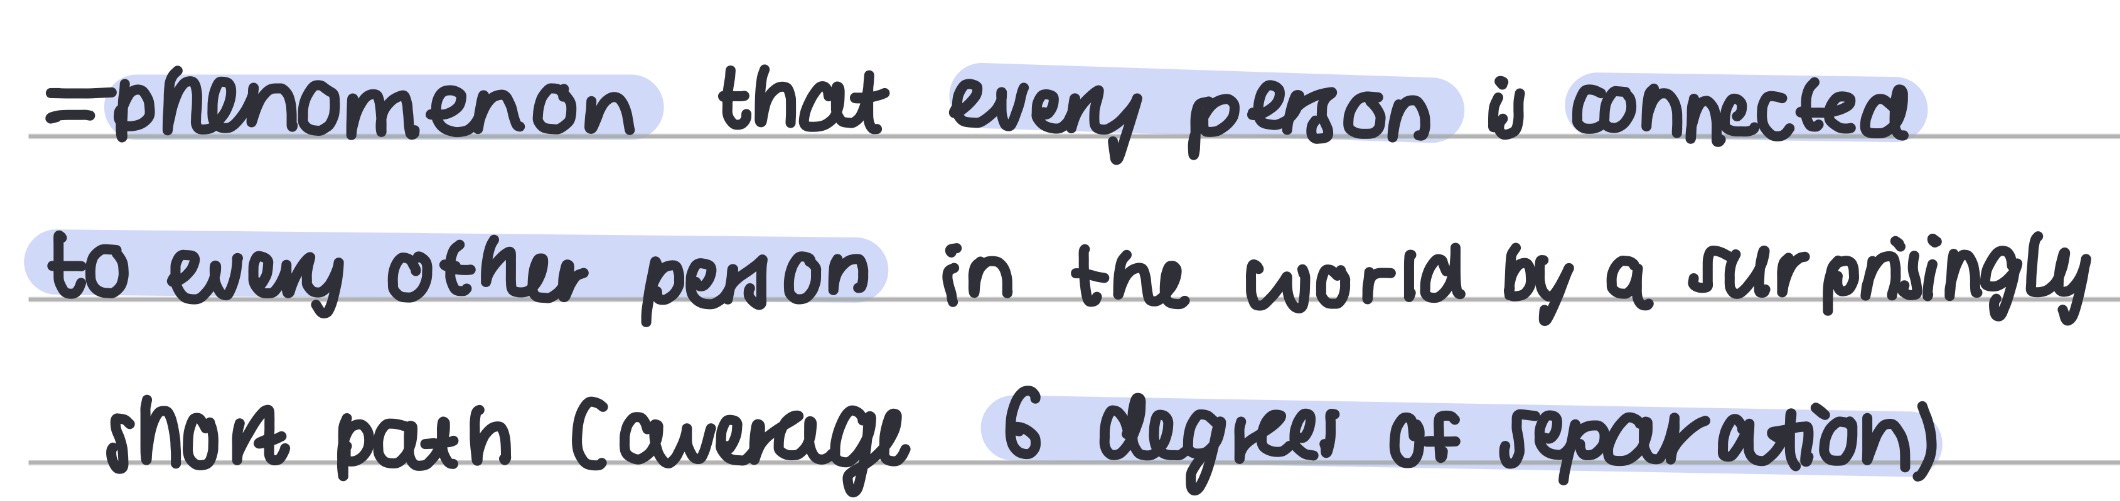 =phenomenon that every person is connected
to every other person in the world by a surprisingly
short path (average 6 degrees of separation)